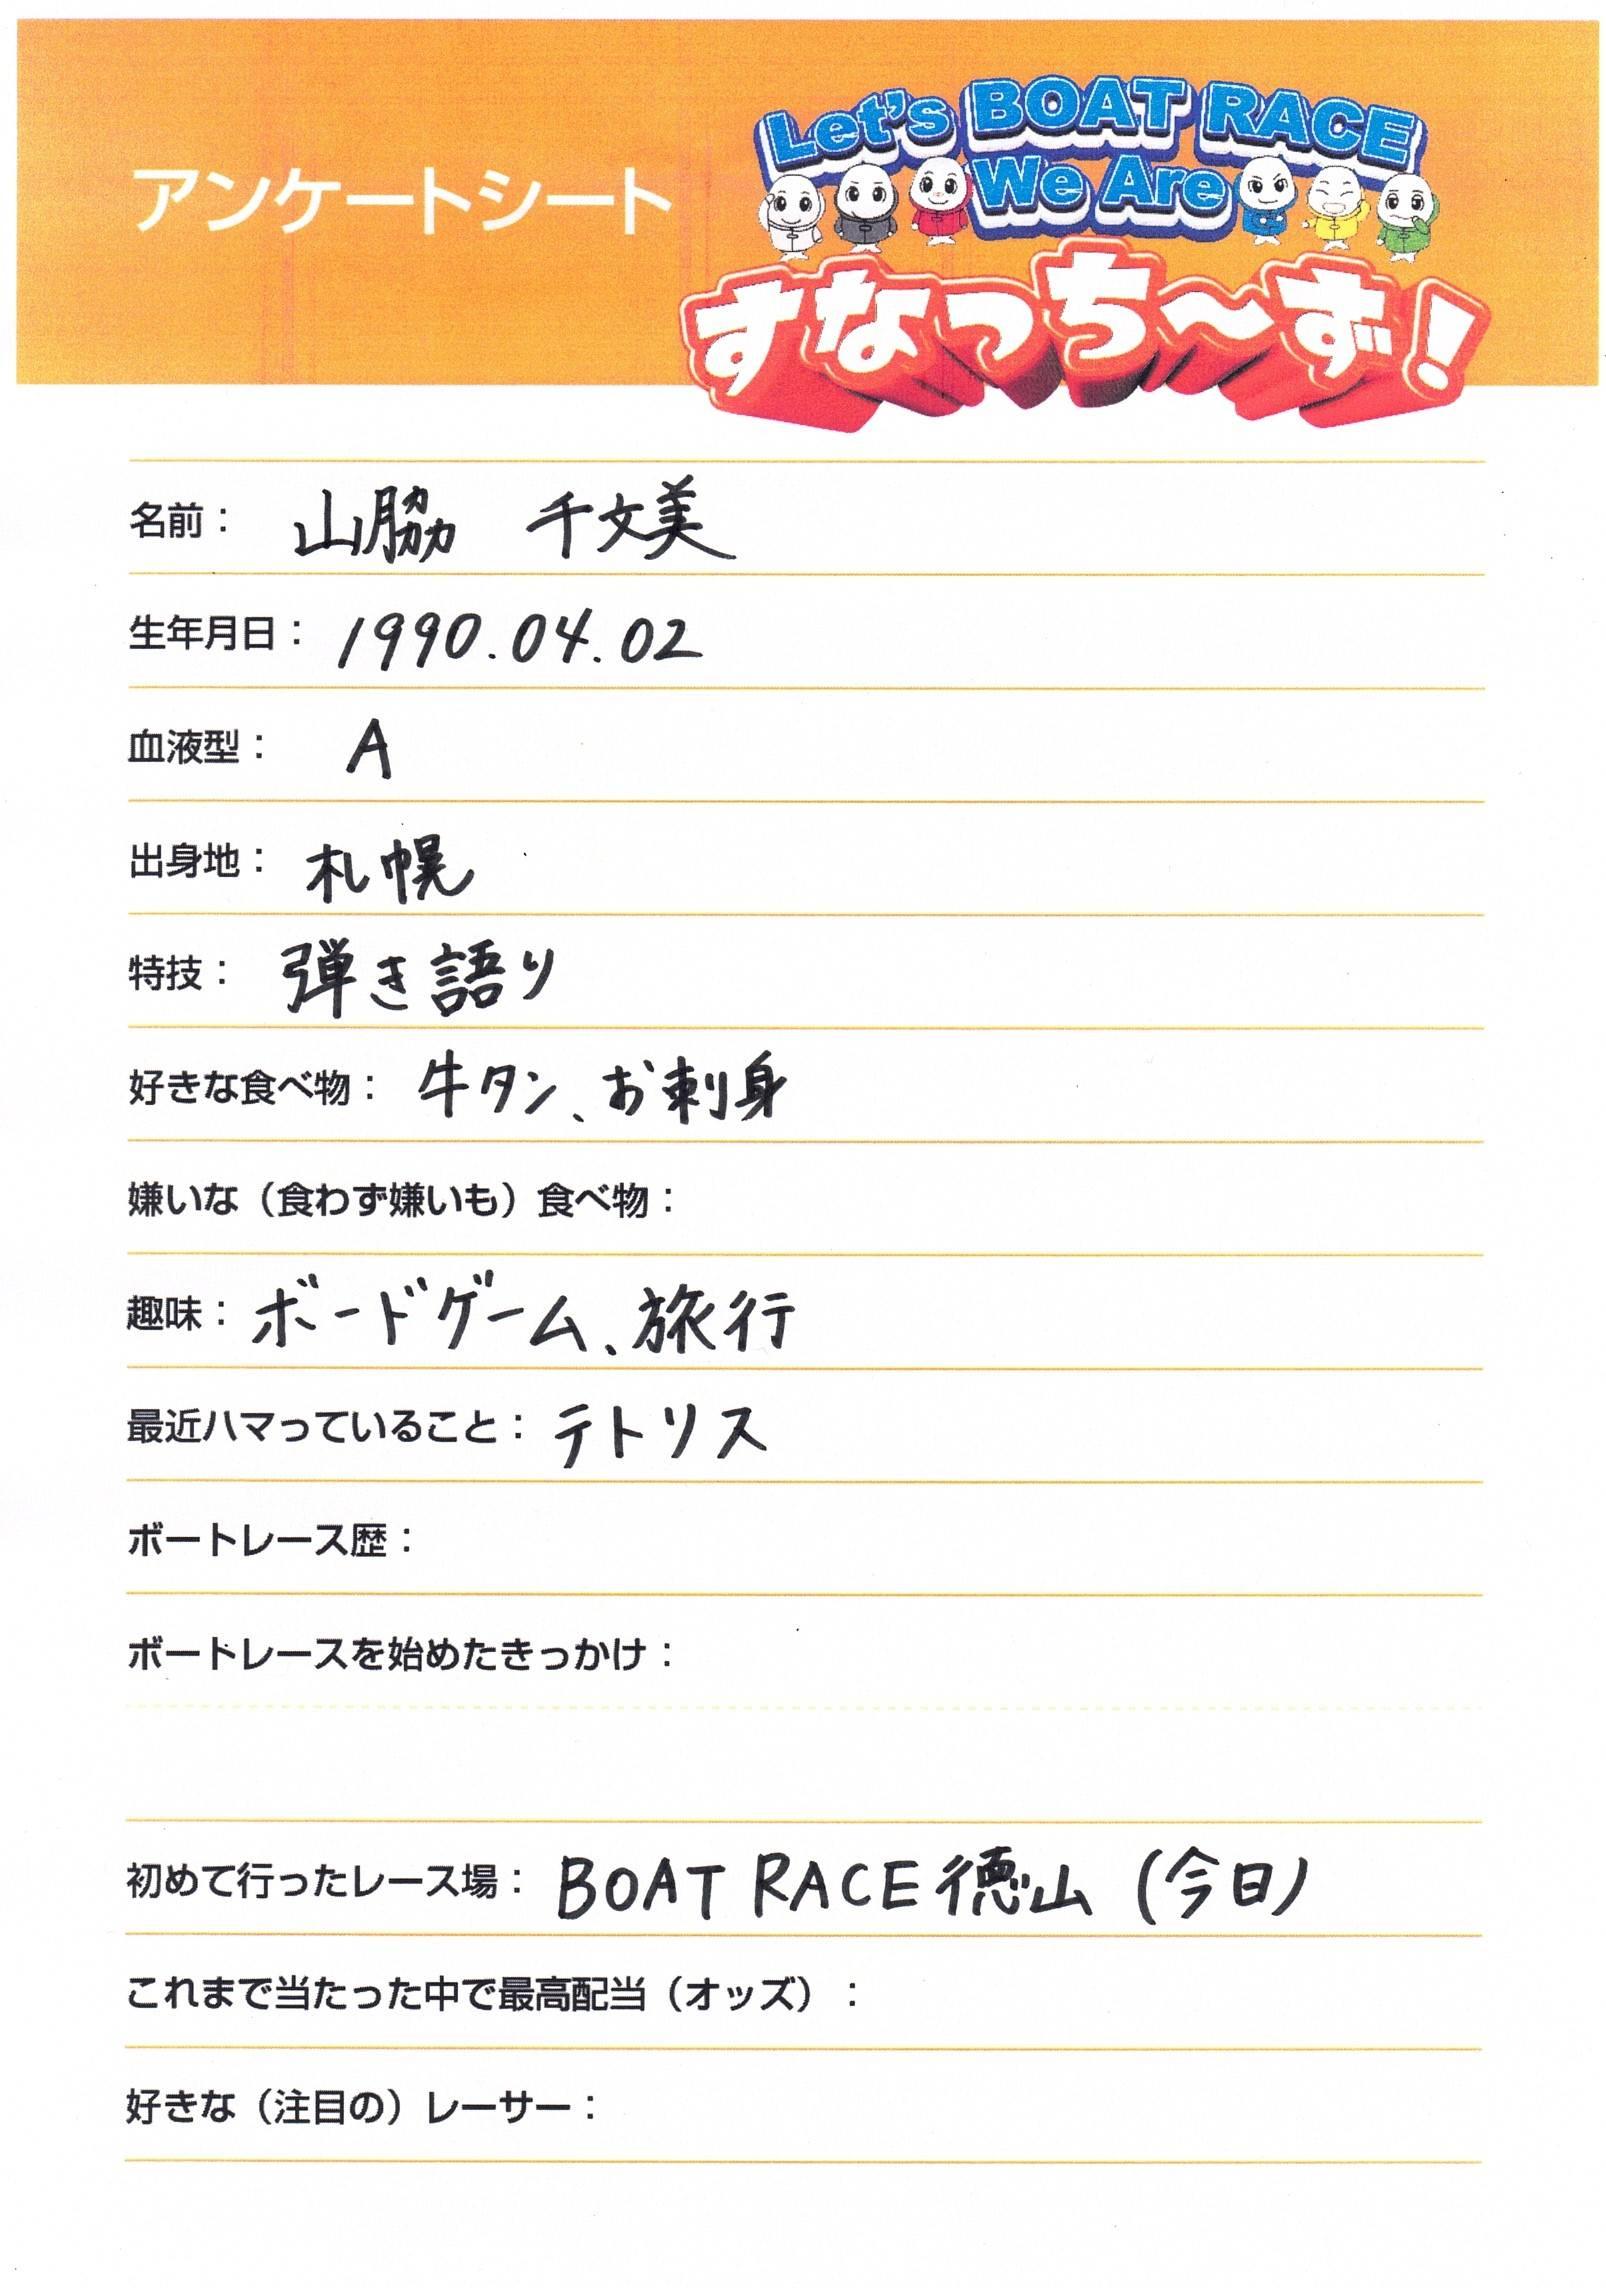 アンケートシート
Let's BOAT RACE
We Are
すなっち〜ず!
名前： 山脇 千文美
生年月日： 1990.04.02
血液型： A
出身地： 札幌
特技： 弾き語り
好きな食べ物： 牛タン、お刺身
嫌いな（食わず嫌いも）食べ物：
趣味： ボードゲーム、旅行
最近ハマっていること： テトリス
ボートレース歴：
ボートレースを始めたきっかけ：
初めて行ったレース場： BOAT RACE 徳山 (今日)
これまで当たった中で最高配当（オッズ）：
好きな（注目の）レーサー：